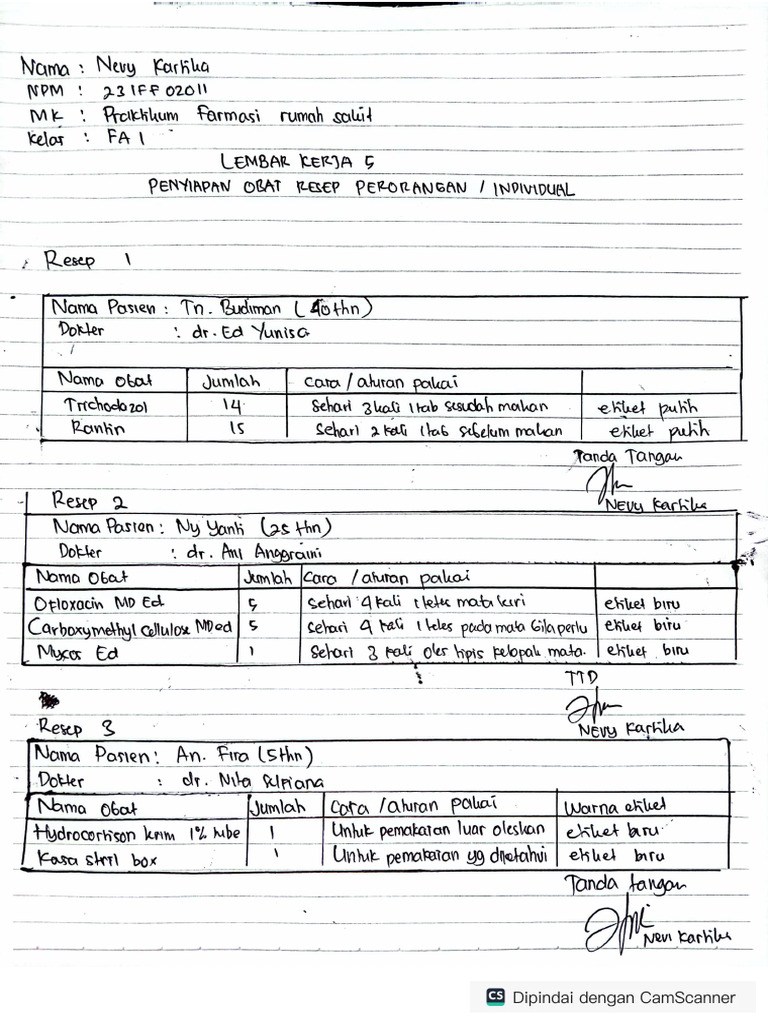 Nama : Nevy Kartika
NPM : 231FF02011
MK : Praktikum Farmasi rumah sakit
Kelas : FA 1
LEMBAR KERJA 5
PENYIAPAN OBAT RESEP PERORANGAN / INDIVIDUAL
Resep 1
Nama Pasien : Tn. Budiman (40 thn)
Dokter : dr. Ed Yunisa
Nama Obat Jumlah Cara / aturan pakai
Trichodazol 14 Sehari 3 kali 1 tab sesudah makan etiket putih
Rantin 15 Sehari 2 kali 1 tab sebelum makan etiket putih
Tanda Tangan
NEVY Kartika
Resep 2
Nama Pasien : Ny Yanti (25 thn)
Dokter : dr. Ani Anggraini
Nama Obat Jumlah Cara / aturan pakai
Ofloxacin MD Ed 5 Sehari 4 kali 1 tetes mata kiri etiket biru
Carboxymethyl cellulose MD ed 5 Sehari 4 kali 1 tetes pada mata bila perlu etiket biru
Mycos Ed 1 Sehari 3 kali oles tipis kelopak mata. etiket biru
TTD
NEVY Kartika
Resep 3
Nama Pasien : An. Fira (5 thn)
Dokter : dr. Nita
Nama Obat Jumlah Cara / aturan pakai Warna etiket
Hydrocortison krim 1% tube 1 Untuk pemakaian luar oleskan etiket biru
Kasa steril box 1 Untuk pemakaian yg diketahui etiket biru
Tanda tangan
Nevi Kartika
CS Dipindai dengan CamScanner